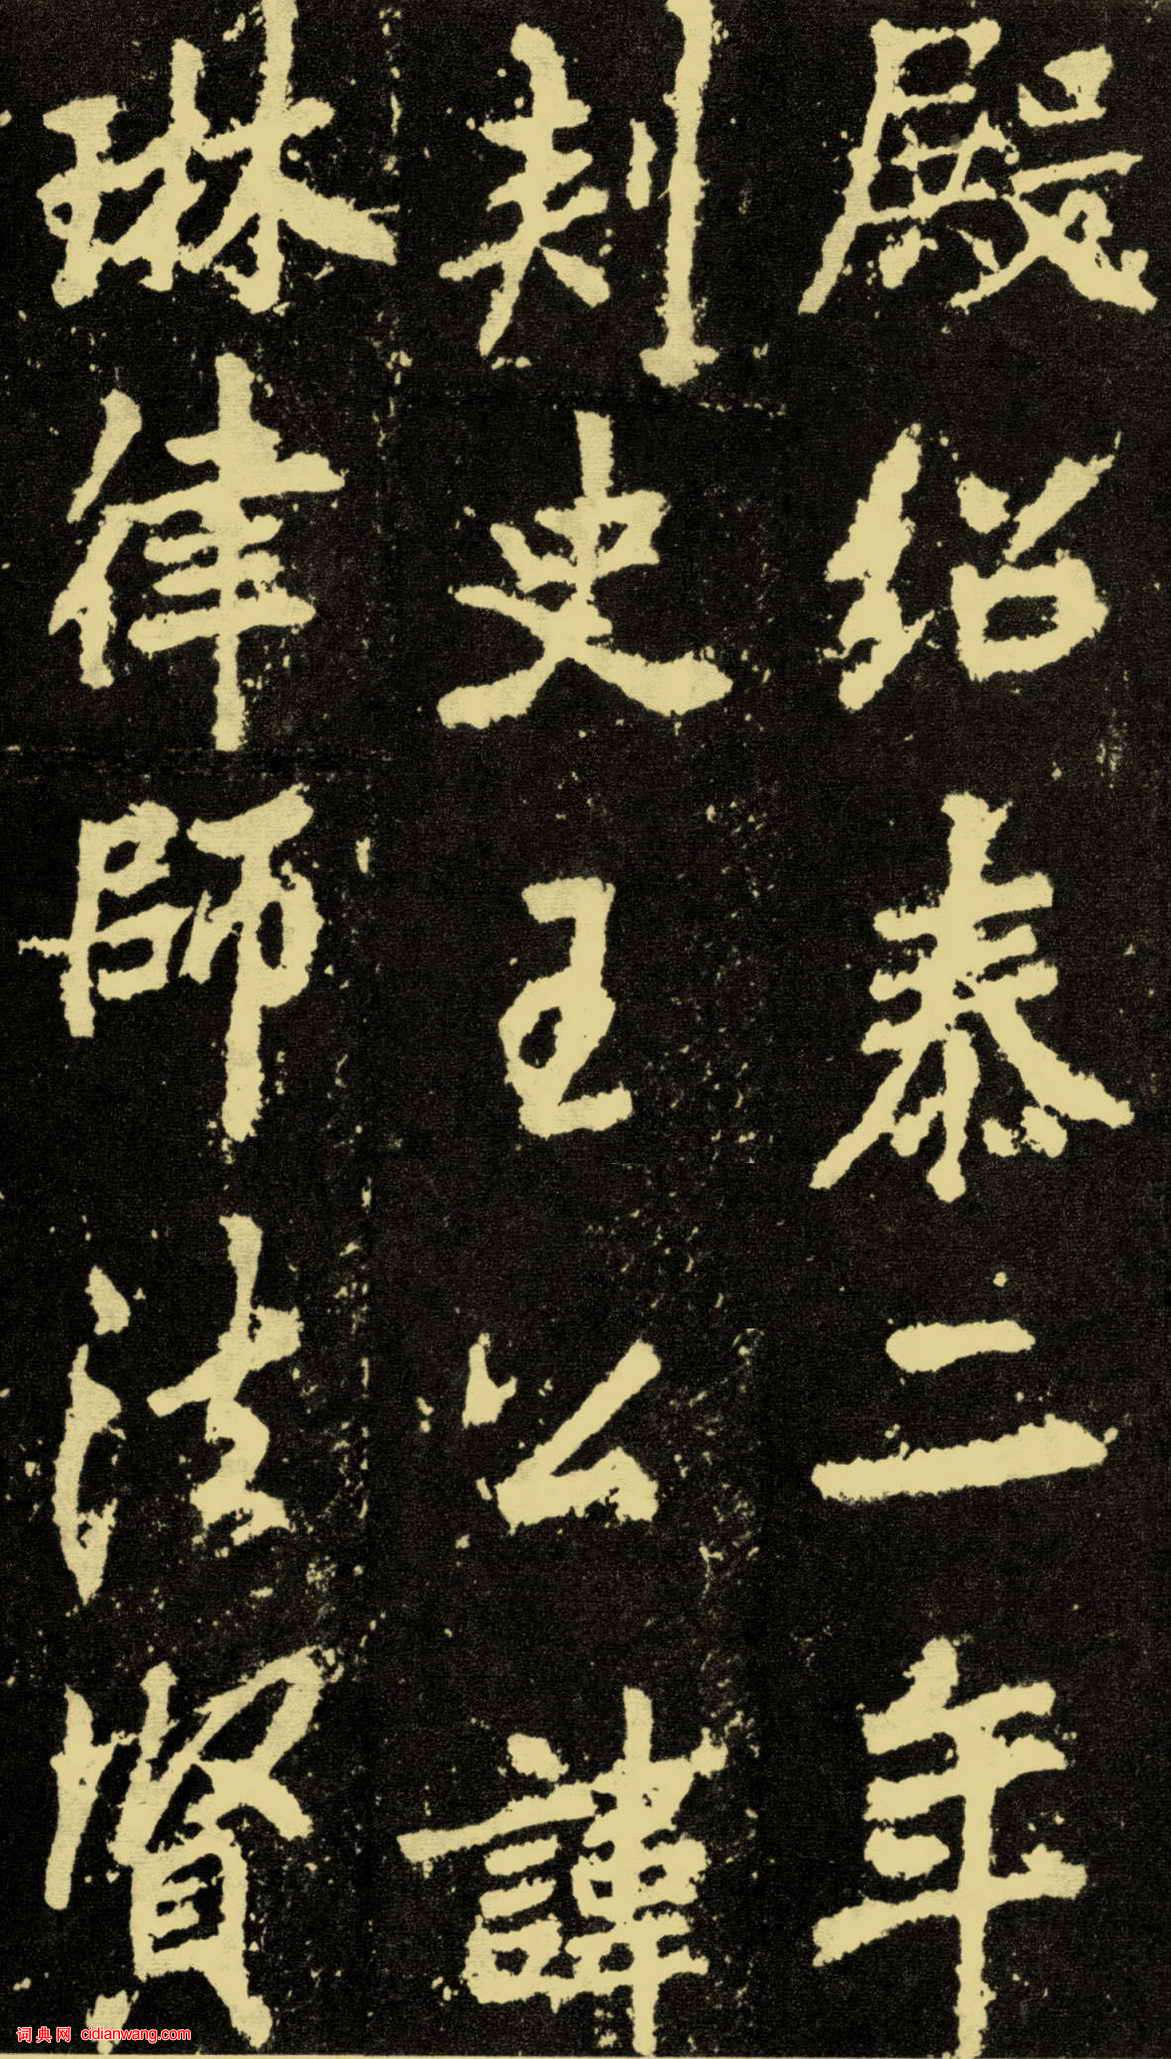 殿紹泰二年
刺史王公諱
琳律師法賢
词典网 cidianwang.com